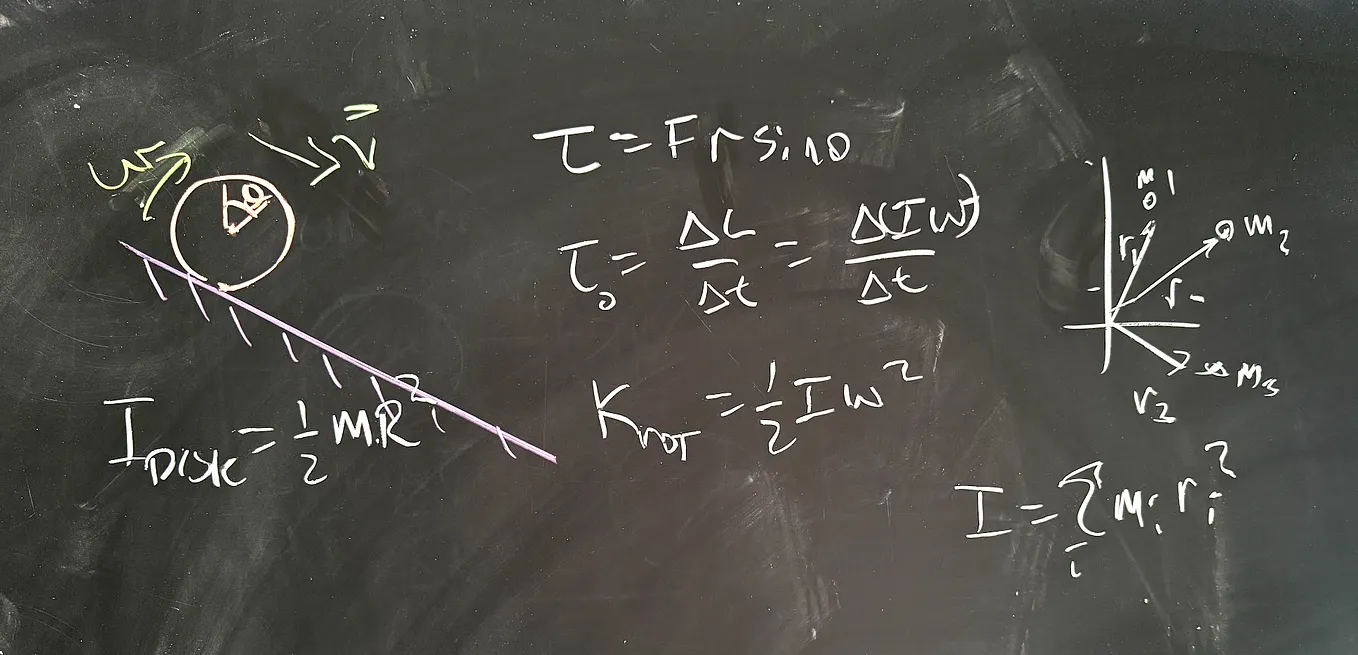 ω
v⃗
Δθ
I_DISK = 1/2 MR²
τ = F r sinθ
τ₀ = ΔL/Δt = Δ(Iω)/Δt
K_rot = 1/2 I ω²
m₁
r₁
m₂
m₃
I = Σ_i mᵢ rᵢ²